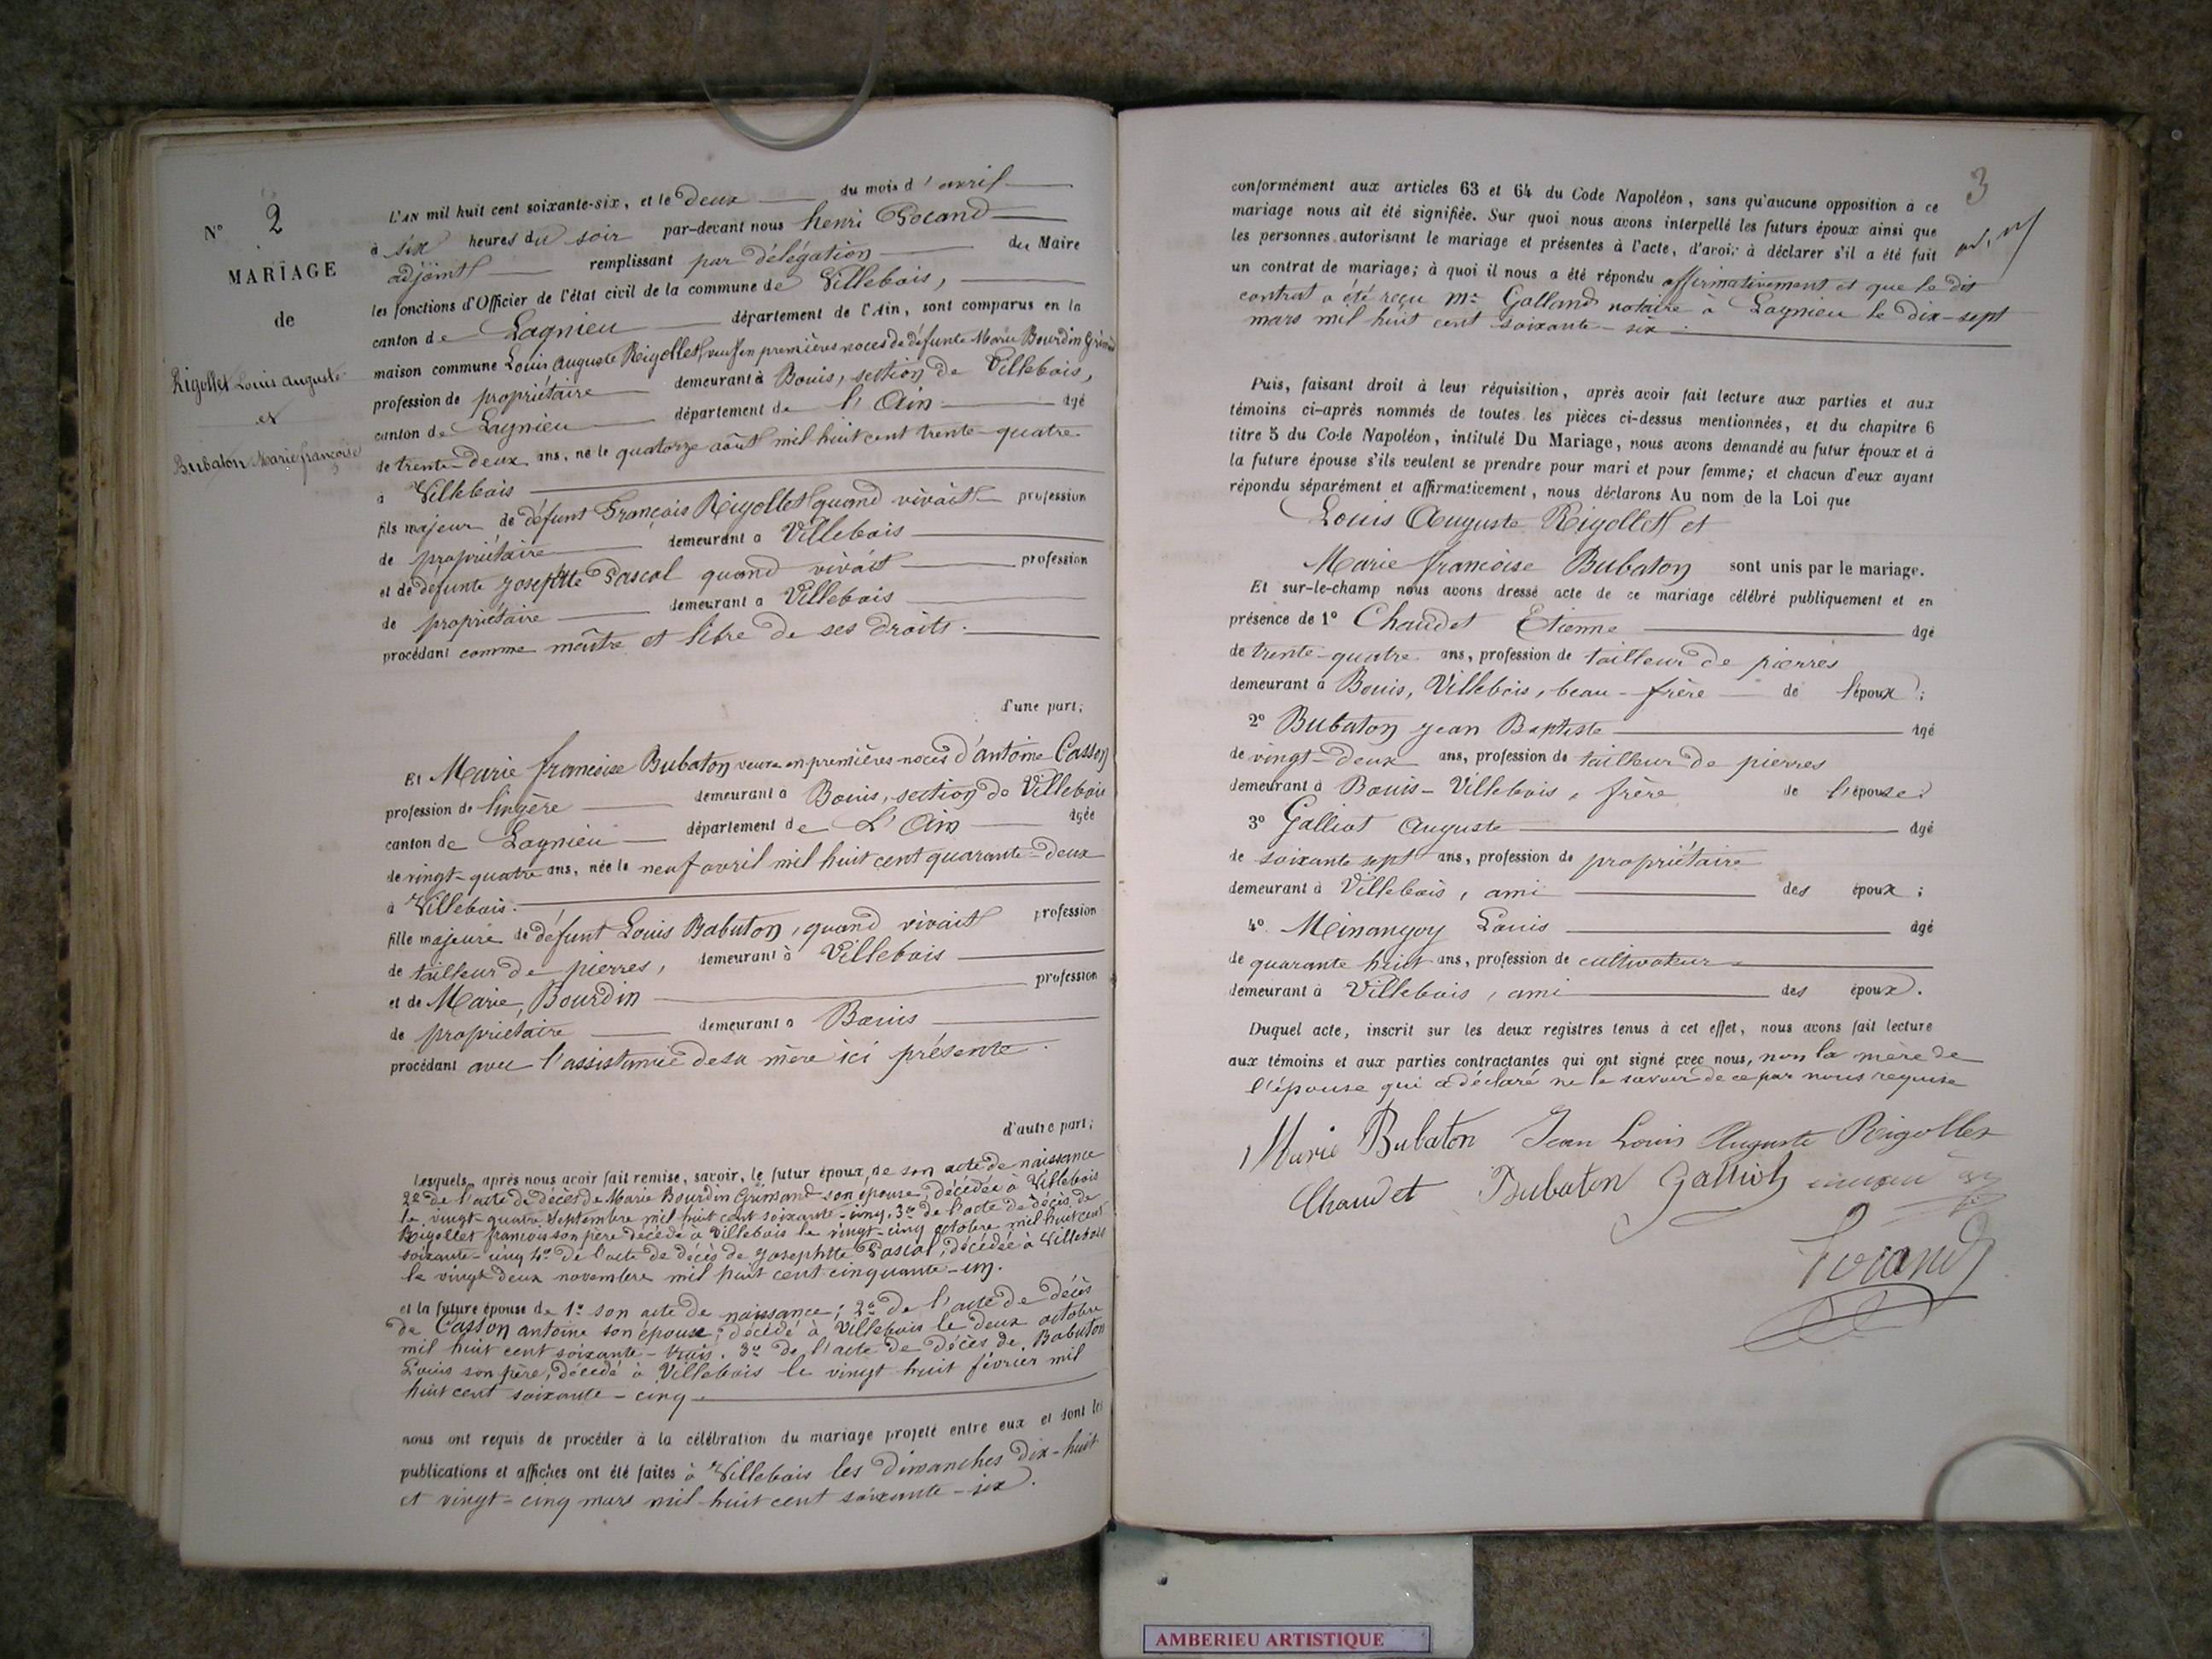 N° 2
MARIAGE
de
Rigollet Louis Auguste
et
Bubaton Marie françoise
L'AN mil huit cent soixante-six, et le deux du mois d'avril
à six heures du soir par-devant nous henri Gocand
adjoint remplissant par délégation du Maire
les fonctions d'Officier de l'état civil de la commune de Villebois,
canton de Lagnieu département de l'Ain, sont comparus en la
maison commune Louis Auguste Rigollet, veuf en premières noces de défunte Marie Bourdin Grimand
profession de propriétaire demeurant à Bouis, section de Villebois,
canton de Lagnieu département de l'Ain âgé
de trente-deux ans, né le quatorze août mil huit cent trente-quatre
à Villebois
fils majeur de défunt François Rigollet quand vivait profession
de propriétaire demeurant à Villebois
et de défunte Josephtte Pascal quand vivait profession
de propriétaire demeurant à Villebois
procédant comme maître et libre de ses droits.
d'une part;
Et Marie françoise Bubaton veuve en premières noces d'antoine Casson
profession de lingère demeurant à Bouis, section de Villebois
canton de Lagnieu département de L'Ain âgée
de vingt-quatre ans, née le neuf avril mil huit cent quarante-deux
à Villebois.
fille majeure de défunt Louis Babuton, quand vivait profession
de tailleur de pierres, demeurant à Villebois
et de Marie Bourdin profession
de propriétaire demeurant à Bouis
procédant avec l'assistance de sa mère ici présente.
d'autre part;
Lesquels, après nous avoir fait remise, savoir, le futur époux, de son acte de naissance
2° de l'acte de décès de Marie Bourdin Grimand son épouse, décédée à Villebois
le vingt-quatre Septembre mil huit cent soixante-cinq. 3° de l'acte de décès de
Rigollet francois son père décédé à Villebois le vingt-cinq octobre mil huit cent
soixante-cinq 4° de l'acte de décès de Josephtte Pascal, décédée à Villebois
le vingt deux novembre mil huit cent cinquante-un.
et la future épouse de 1° son acte de naissance; 2° de l'acte de décès
de Casson antoine son épouse, décédé à Villebois le deux octobre
mil huit cent soixante-trois. 3° de l'acte de décès de Babuton
Louis son père, décédé à Villebois le vingt huit février mil
huit cent soixante-cinq
nous ont requis de procéder à la célébration du mariage projeté entre eux et dont les
publications et affiches ont été faites à Villebois les dimanches dix-huit
et vingt-cinq mars mil huit cent soixante-six.
3
conformément aux articles 63 et 64 du Code Napoléon, sans qu'aucune opposition à ce
mariage nous ait été signifiée. Sur quoi nous avons interpellé les futurs époux ainsi que
les personnes autorisant le mariage et présentes à l'acte, d'avoir à déclarer s'il a été fait
un contrat de mariage; à quoi il nous a été répondu affirmativement et que le dit
contrat a été reçu Mr Galland notaire à Lagnieu le dix-sept
mars mil huit cent soixante-six.
Puis, faisant droit à leur réquisition, après avoir fait lecture aux parties et aux
témoins ci-après nommés de toutes les pièces ci-dessus mentionnées, et du chapitre 6
titre 5 du Code Napoléon, intitulé Du Mariage, nous avons demandé au futur époux et à
la future épouse s'ils veulent se prendre pour mari et pour femme; et chacun d'eux ayant
répondu séparément et affirmativement, nous déclarons Au nom de la Loi que
Louis Auguste Rigollet et
Marie francoise Bubaton sont unis par le mariage.
Et sur-le-champ nous avons dressé acte de ce mariage célébré publiquement et en
présence de 1° Chaudet Etienne âgé
de trente-quatre ans, profession de tailleur de pierres
demeurant à Bouis, Villebois, beau-frère de l'époux;
2° Bubaton Jean Baptiste âgé
de vingt-deux ans, profession de tailleur de pierres
demeurant à Bouis-Villebois, frère de l'épouse
3° Galliot Auguste âgé
de soixante sept ans, profession de propriétaire
demeurant à Villebois, ami des époux;
4° Minangoy Louis âgé
de quarante huit ans, profession de cultivateur
demeurant à Villebois, ami des époux.
Duquel acte, inscrit sur les deux registres tenus à cet effet, nous avons fait lecture
aux témoins et aux parties contractantes qui ont signé avec nous, non la mère de
l'épouse qui a déclaré ne le savoir de ce par nous requise
Marie Bubaton Jean Louis Auguste Rigollet
Chaudet Bubaton Galliot
Gocand
AMBERIEU ARTISTIQUE